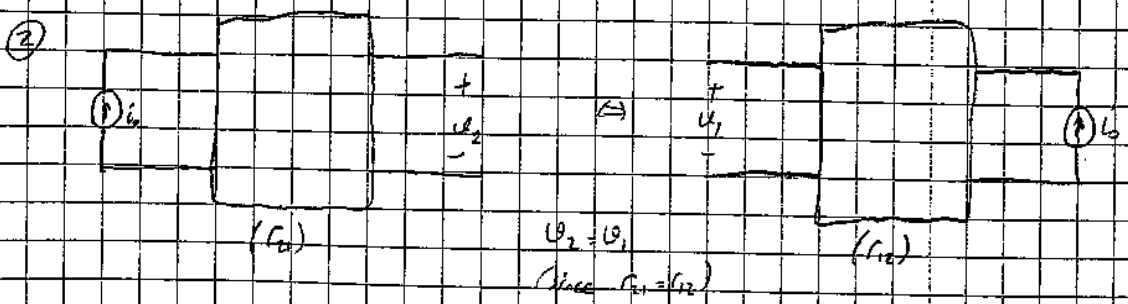 ②
i₀
+
v₂
-
⇔
+
v₁
-
i₀
(r₂₁)
v₂ = v₁
(since r₂₁ = r₁₂)
(r₁₂)